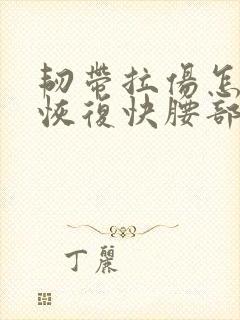 韧帶拉傷怎
恢復快腰部
丁麗